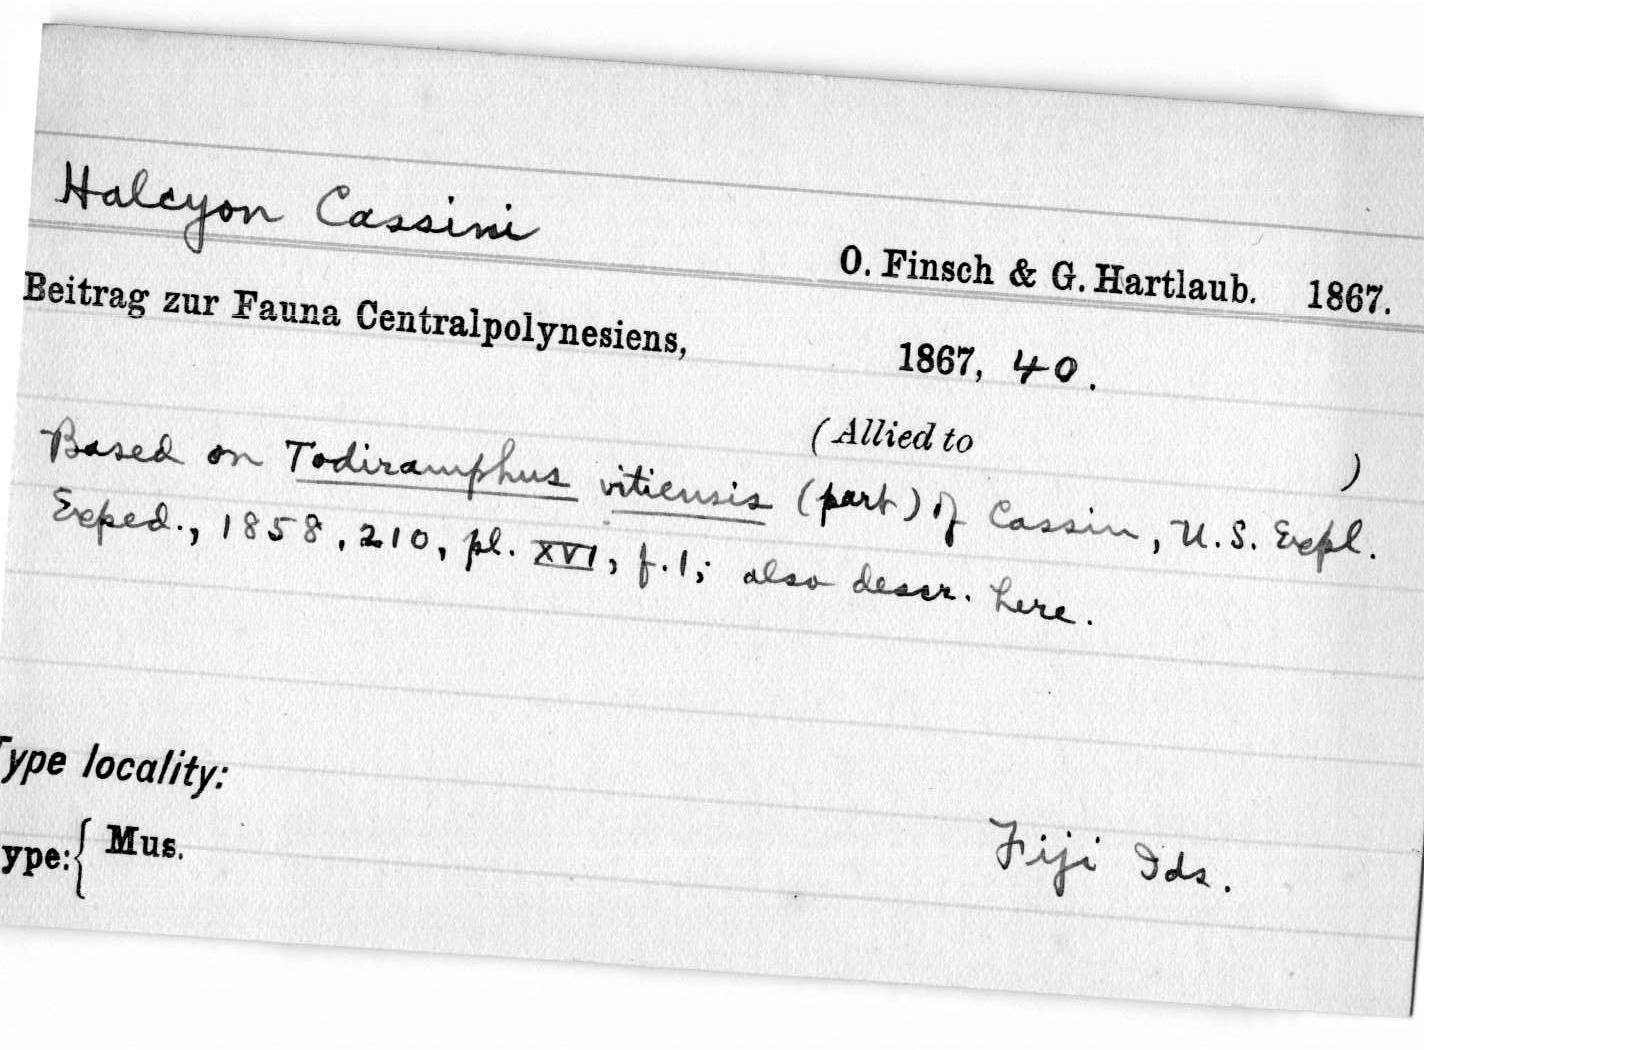 Halcyon Cassini
O. Finsch & G. Hartlaub. 1867.
Beitrag zur Fauna Centralpolynesiens,
1867, 40.
(Allied to )
Based on Todiramphus vitiensis (part) of Cassin, U.S. Expl.
Exped., 1858, 210, pl. XVI, f.1; also descr. here.
Type locality:
Fiji Ids.
ype: { Mus.